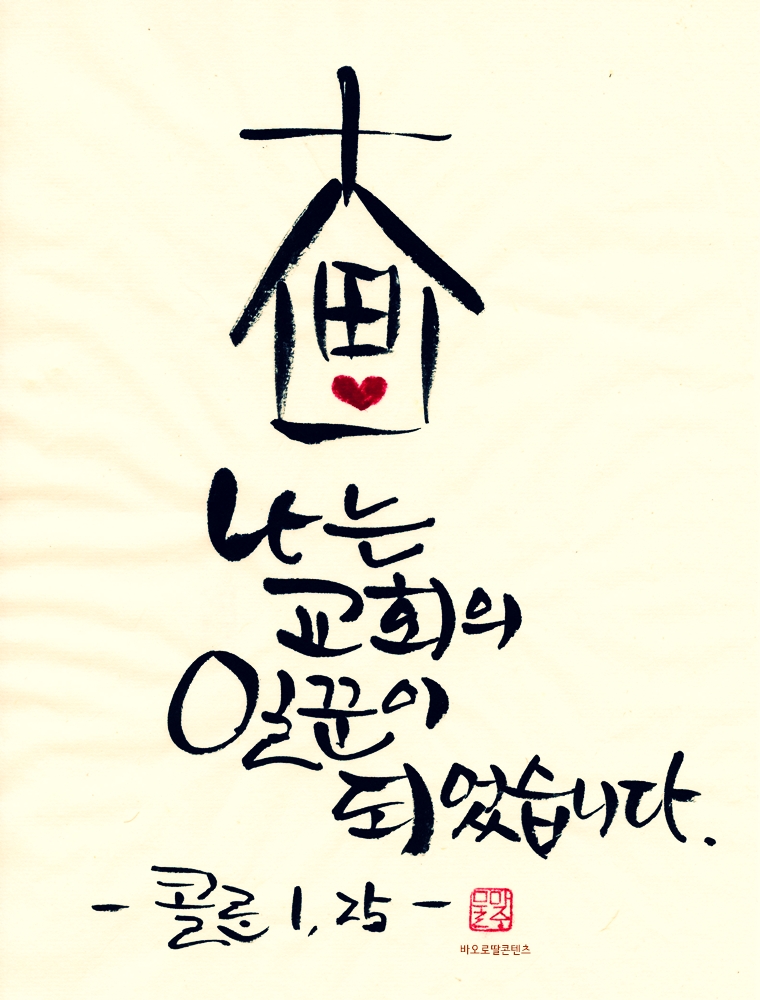 나는
교회의
일꾼이
되었습니다.
- 콜로 1, 25 -
바오로딸콘텐츠